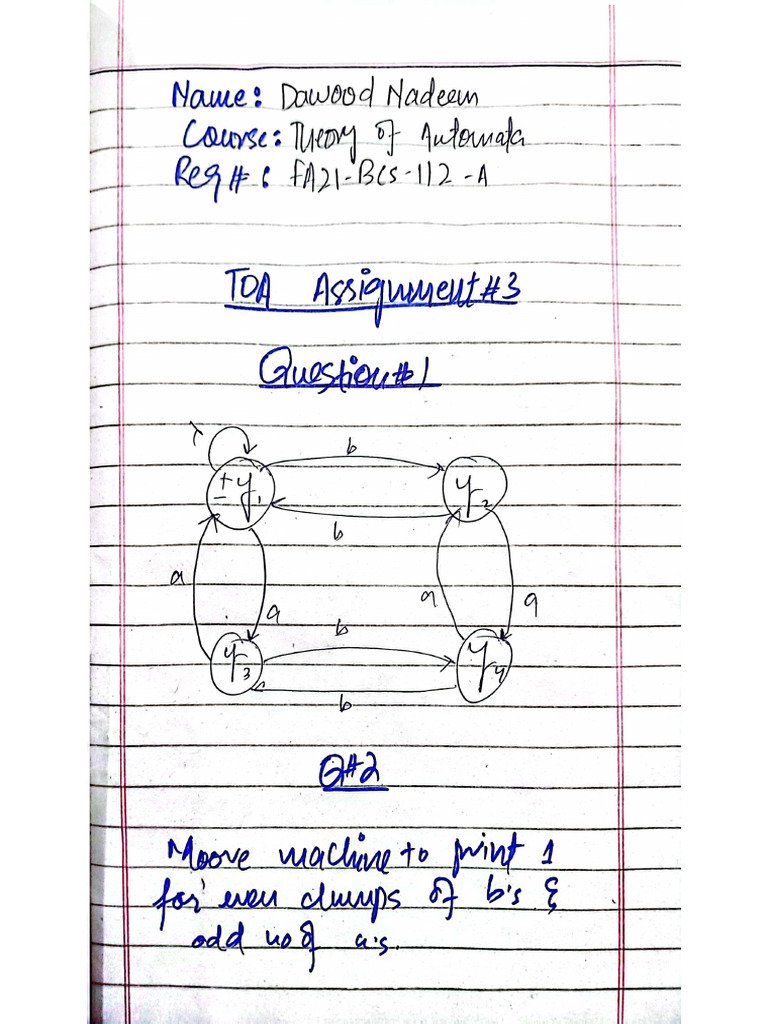 Name: Dawood Nadeem
Course: Theory of Automata
Reg#: FA21-BCS-112-A
TOA Assignment#3
Question#1
λ
b
± y1
y2
b
a
a
a
a
b
y3
y4
b
Q#2
Moore machine to print 1
for even clumps of b's &
odd no of a's.